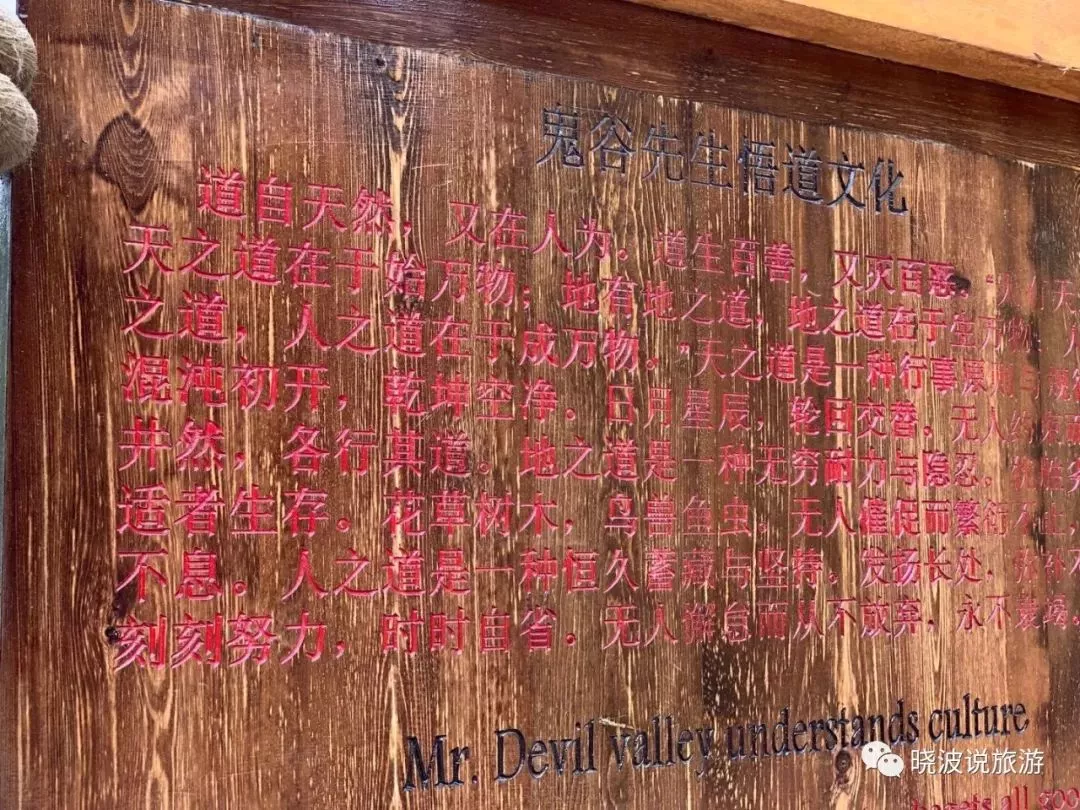 鬼谷先生悟道文化
道自天然，又在人为。道生百善，又灭百恶。"
天之道在于始万物；地有地之道，地之道在于生万物；人
之道，人之道在于成万物。"天之道是一种行事原则与规
混沌初开，乾坤空净。日月星辰，轮回交替。无人约束而
井然，各行其道。地之道是一种无穷耐力与隐忍。
适者生存。花草树木，鸟兽鱼虫。无人催促而繁衍不止，
不息。人之道是一种恒久蓄藏与坚持。发扬长处，弥补不
刻刻努力，时时自省。无人懈怠而从不放弃，永不衰竭。
Mr. Devil valley understands culture
all
晓波说旅游